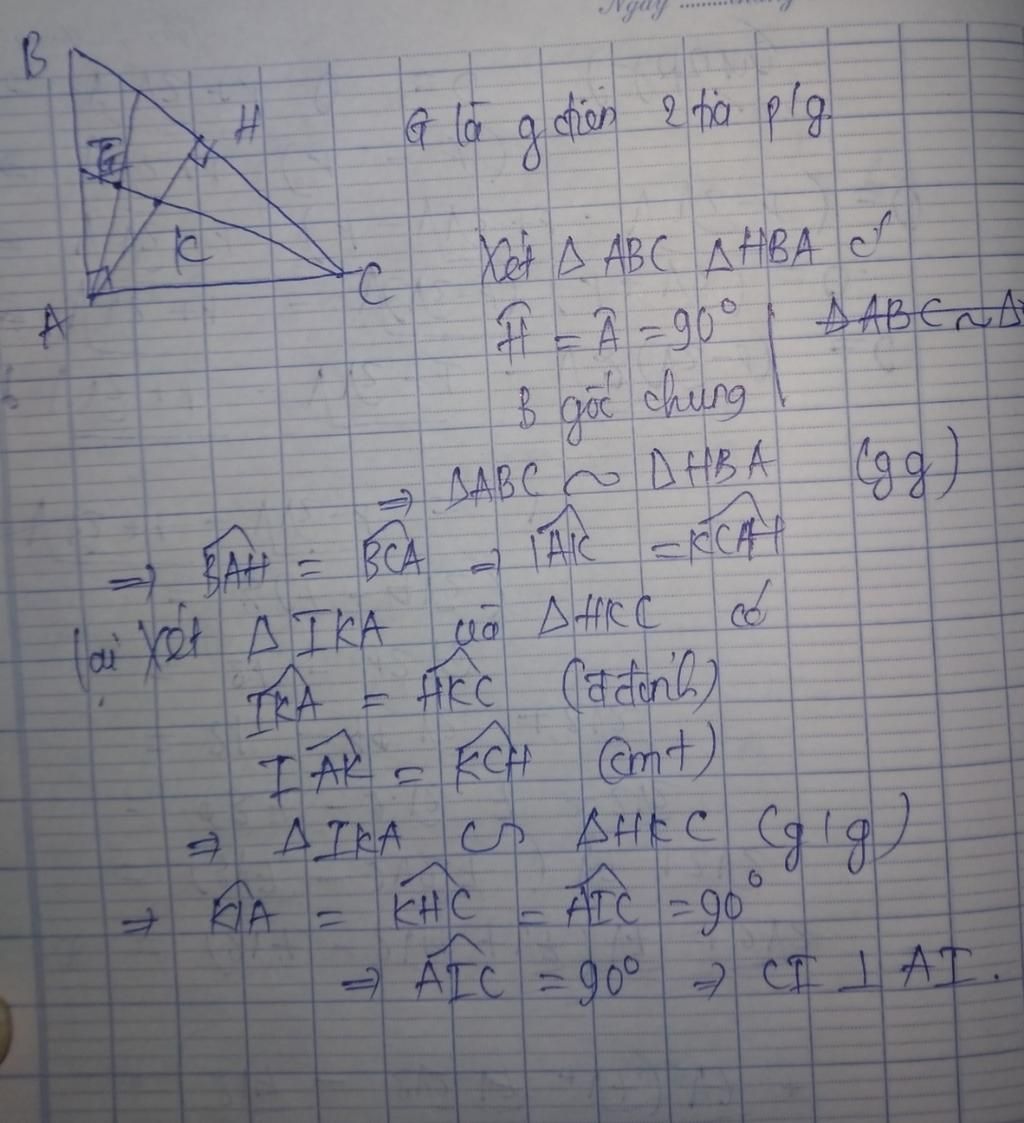 Ngày
B
H
I
K
A
C
G là g điểm 2 tia p/g
Xét Δ ABC Δ HBA có
Ĥ = Â = 90°
B góc chung
Δ ABC ~ Δ
=> ΔABC ~ ΔHBA (gg)
=> BAH = BCA => IAK = KCH
Lại Xét Δ IKA và Δ HKC có
IKA = HKC (đ đỉnh)
IAK = KCH (cmt)
=> Δ IKA ∽ ΔHKC (g/g)
=> KIA = KHC = AIC = 90°
=> AIC = 90° => CI ⊥ AI.